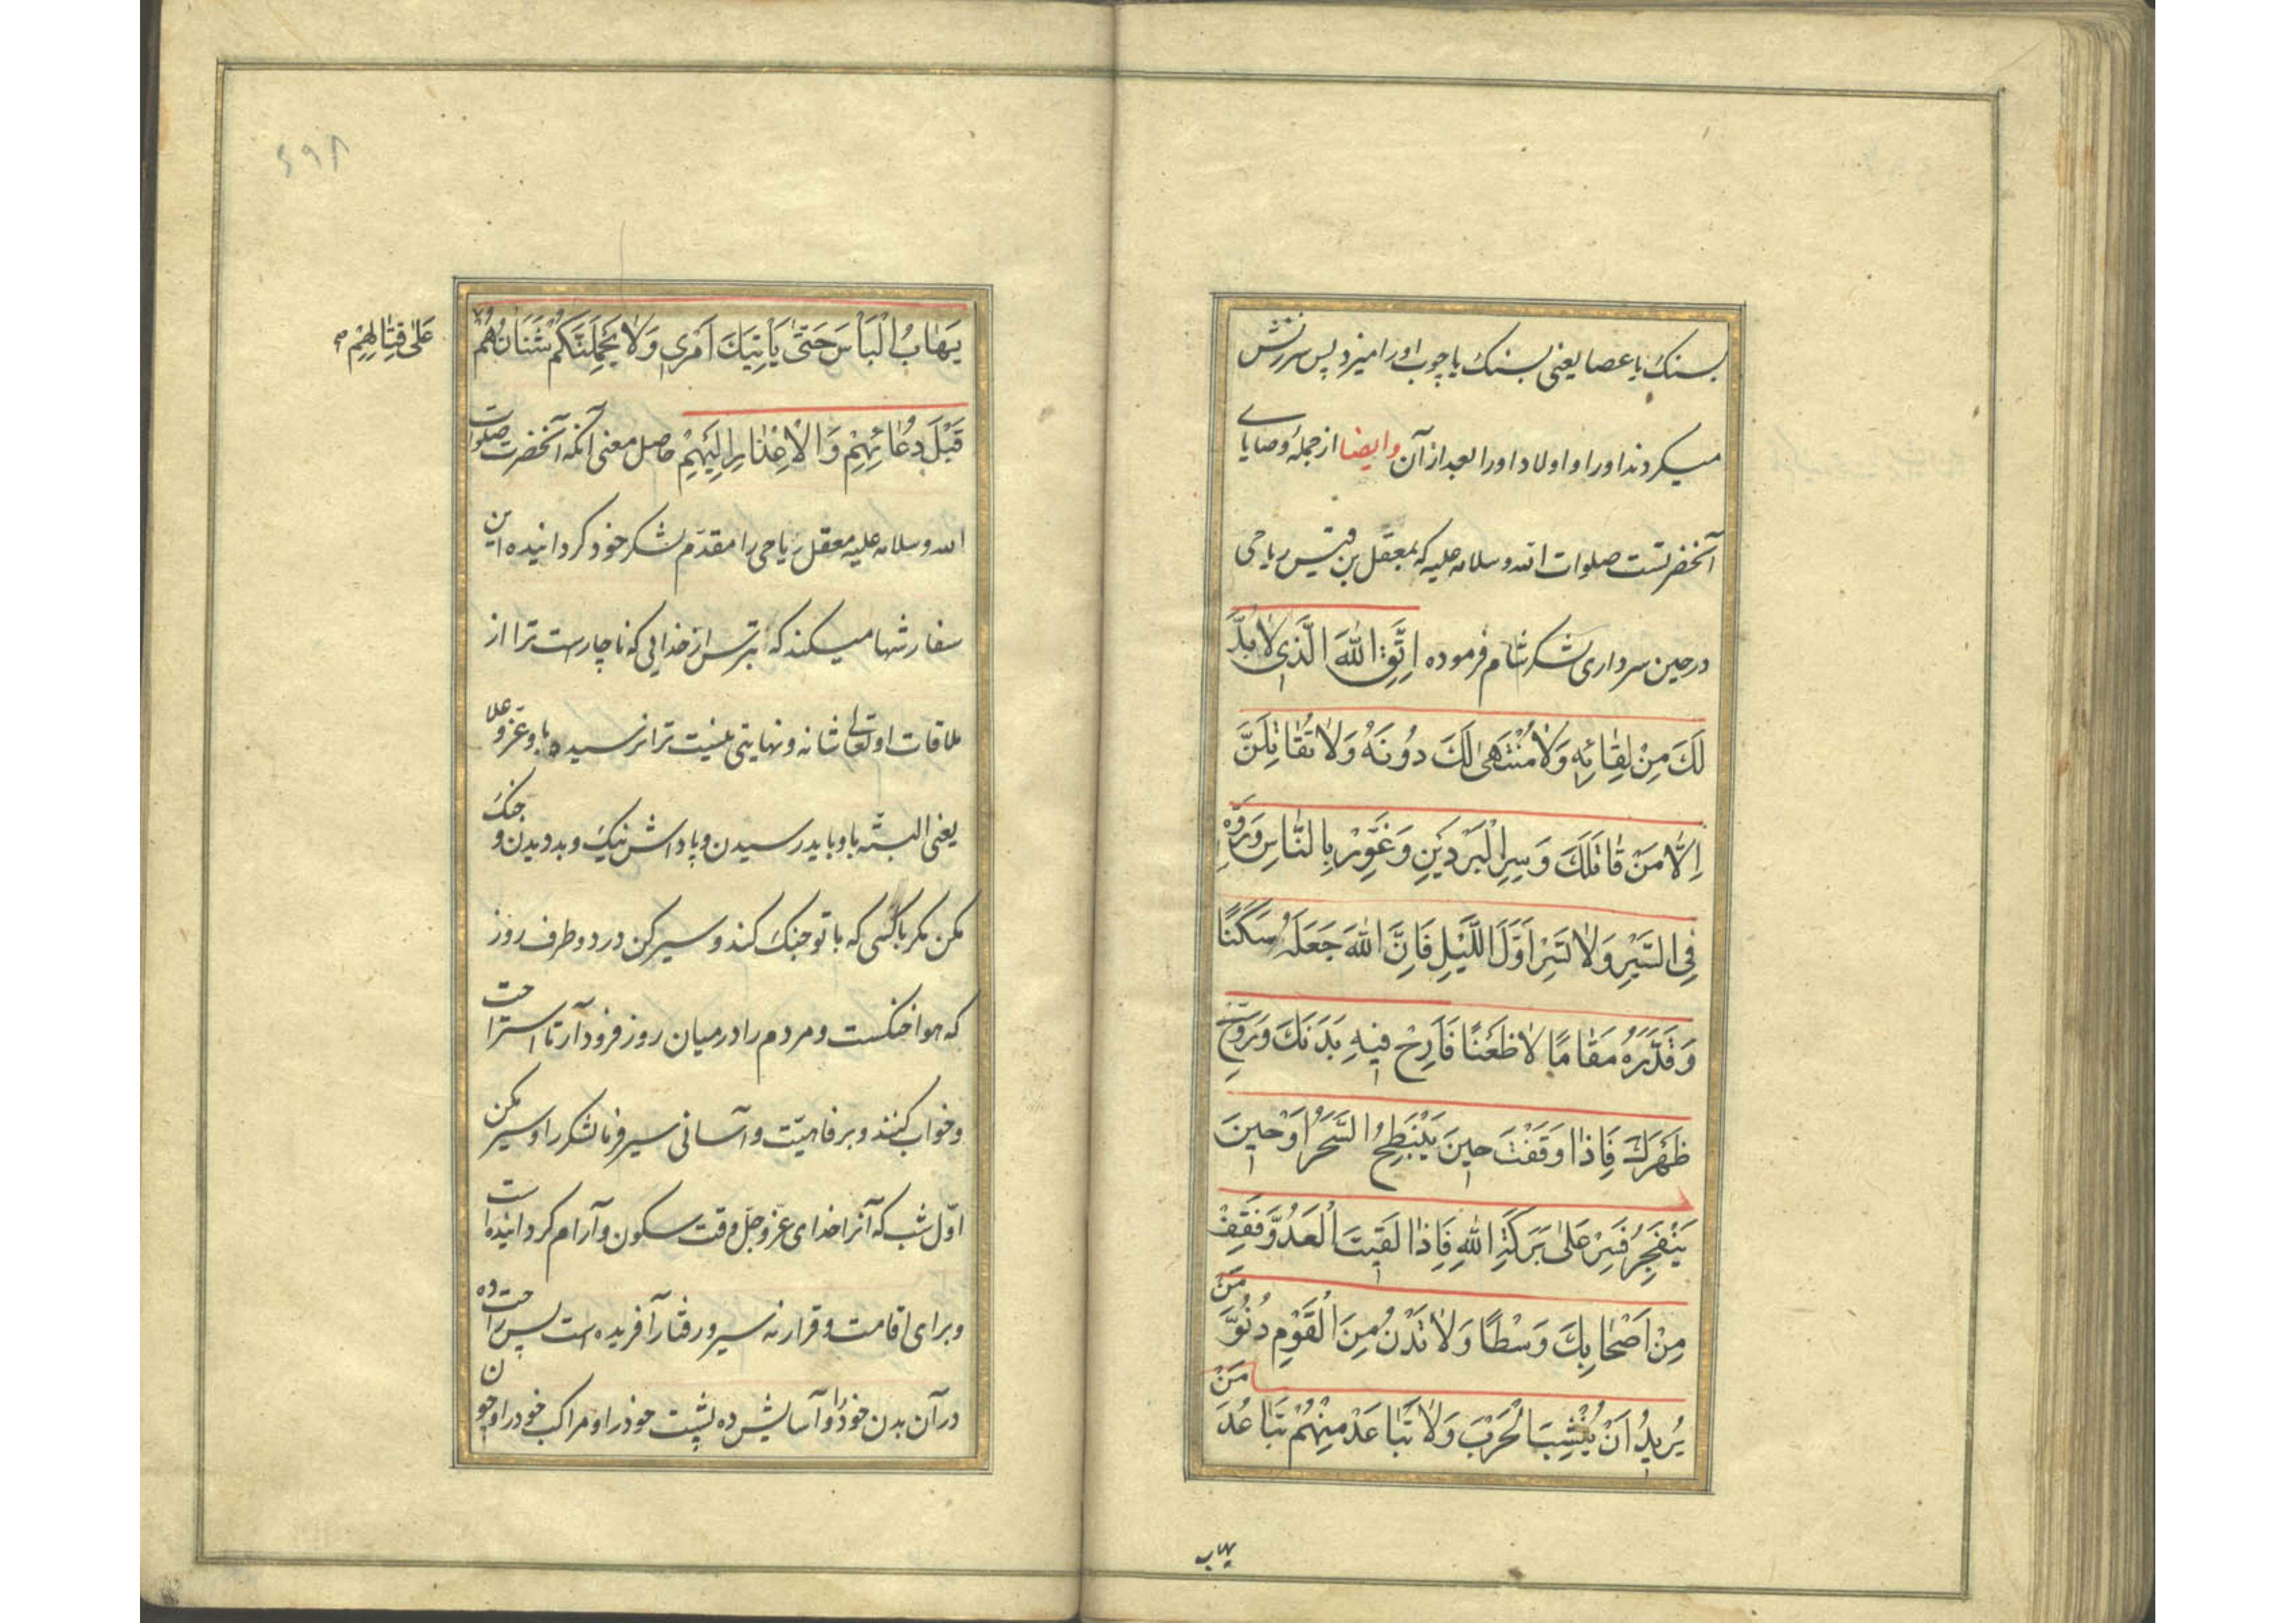 بسنك یا عصا یعنی بسنك یا چوب اورا میزد پس سرزنش
میکردند اورا و اولاد اورا بعد از آن وایضا از جملهٔ وصایای
آنحضرتست صلوات الله وسلامه علیه که بمعقل بن قیس ریاحی
در حین سرداری لشکر شام فرموده اِتَّقِ اللّٰهَ الَّذی لاٰ بُدَّ
لَكَ مِنْ لِقٰائِهِ وَلاٰ مُنْتَهىٰ لَكَ دُونَهُ وَلاٰ تُقٰاتِلَنَّ
اِلّٰا مَنْ قٰاتَلَكَ وَسِرِ الْبَرْدَیْنِ وَغَوِّرْ بِالنّٰاسِ وَرَفِّهْ
فِی السَّیْرِ وَلاٰ تَسِرْ اَوَّلَ اللَّیْلِ فَاِنَّ اللّٰهَ جَعَلَهُ سَكَنًا
وَقَدَّرَهُ مَقٰامًا لاٰ ظَعْنًا فَاَرِحْ فیهِ بَدَنَكَ وَرَوِّحْ
ظَهْرَكَ فَاِذٰا وَقَفْتَ حینَ یَنْبَطِحُ السَّحَرُ اَوْ حینَ
یَنْفَجِرُ فَسِرْ عَلىٰ بَرَكَةِ اللّٰهِ فَاِذٰا لَقیتَ الْعَدُوَّ فَقِفْ
مِنْ اَصْحٰابِكَ وَسْطًا وَلاٰ تَدْنُ مِنَ الْقَوْمِ دُنُوَّ مَنْ
یُریدُ اَنْ یُنْشِبَ الْحَرْبَ وَلاٰ تَبٰاعَدْ مِنْهُمْ تَبٰاعُدَ مَنْ
یهاب
٦٩٨
یَهٰابُ الْبَأْسَ حَتّىٰ یَأْتِیَكَ اَمْری وَلاٰ یَحْمِلَنَّكُمْ شَنَاٰنُهُمْ
عَلىٰ قِتٰالِهِمْ
قَبْلَ دُعٰائِهِمْ وَالْاِعْذٰارِ اِلَیْهِمْ حاصل معنی آنکه آنحضرت صلوات
الله وسلامه علیه معقل ریاحی را مقدّم لشکر خود کردانیده این
سفارشها میکند که بترس از خدایی که ناچارست ترا از
ملاقات او تعالی شانه و نهایتی نیست ترا نرسیده باو عزّ و علا
یعنی البتّه باو باید رسیدن و پاداش نیك و بد دیدن و جنك
مکن مکر باکسی که با تو جنك کند و سیر کن در دو طرف روز
که هوا خنکست و مردم را در میان روز فرود آر تا استراحت
و خواب کنند و برفاهیّت و آسانی سیر فرما لشکر را و سیر مکن
اوّل شب که آنرا خدای عزّ و جلّ وقت سکون و آرام کردانیده است
و برای اقامت و قرار نه سیر و رفتار آفریده است پس راحت ده
در آن بدن خود را و آسایش ده پشت خود را و مراکب خود را و چون